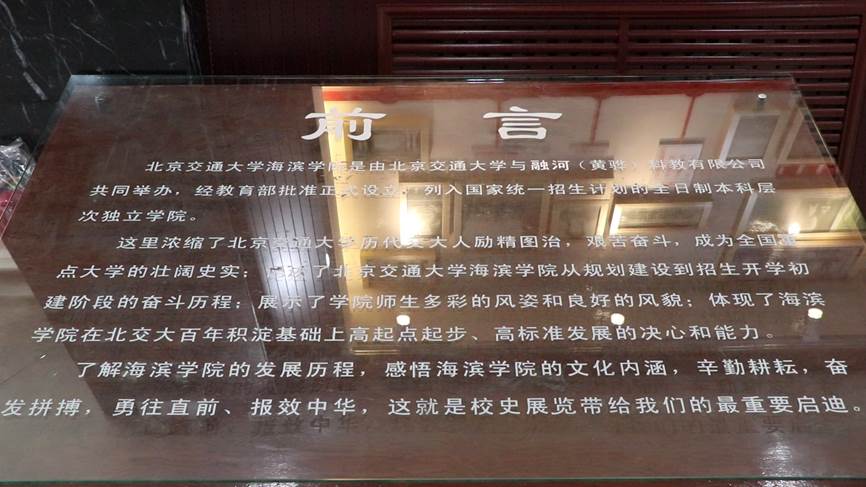 前言
北京交通大学海滨学院是由北京交通大学与融河（黄骅）科教有限公司
共同举办，经教育部批准正式设立，列入国家统一招生计划的全日制本科层
次独立学院。
这里浓缩了北京交通大学历代交大人励精图治，艰苦奋斗，成为全国重
点大学的壮阔史实；了北京交通大学海滨学院从规划建设到招生开学初
建阶段的奋斗历程；展示了学院师生多彩的风姿和良好的风貌；体现了海滨
学院在北交大百年积淀基础上高起点起步、高标准发展的决心和能力。
了解海滨学院的发展历程，感悟海滨学院的文化内涵，辛勤耕耘，奋
发拼搏，勇往直前、报效中华，这就是校史展览带给我们的最重要启迪。